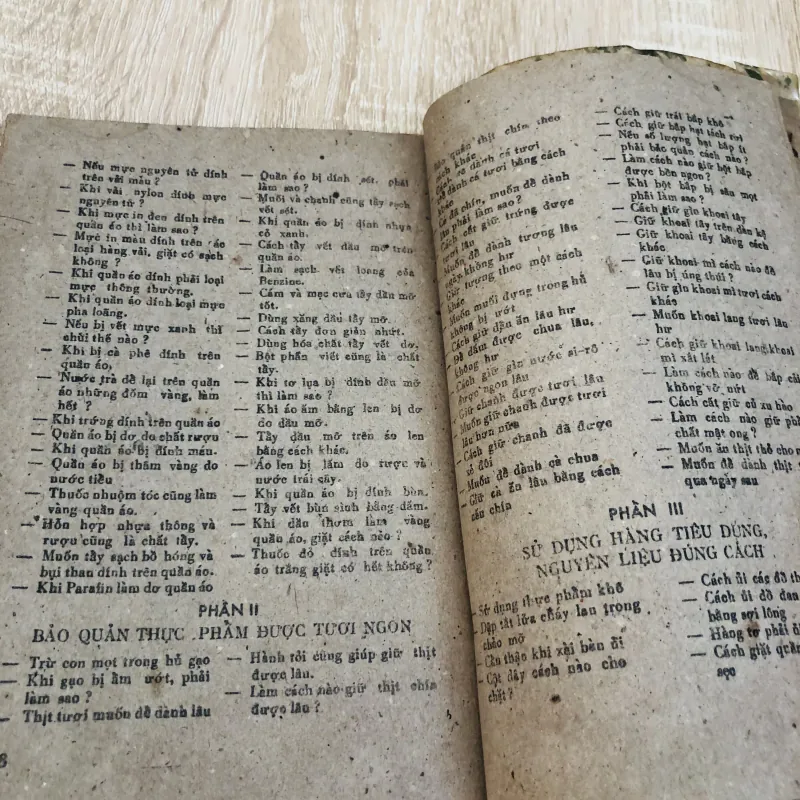 — Nếu mực nguyên tử dính
trên vải màu ?
— Khi vải nylon dính mực
nguyên tử ?
— Khi mực in đen dính trên
quần áo thì làm sao ?
— Mực in màu dính trên áo
loại hàng vải, giặt có sạch
không ?
— Khi quần áo dính phải loại
mực thông thường.
— Khi quần áo dính loại mực
pha loãng.
— Nếu bị vết mực xanh thì
chùi thế nào ?
— Khi bị cà phê dính trên
quần áo,
— Nước trà để lại trên quần
áo những đốm vàng, làm
hết ?
— Khi trứng dính trên quần áo
— Quần áo bị dơ do chất rượu
— Khi quần áo bị dính máu.
— Quần áo bị thấm vàng do
nước tiểu
— Thuốc nhuộm tóc cũng làm
vàng quần áo.
— Hỗn hợp nhựa thông và
rượu cũng là chất tẩy.
— Muốn tẩy sạch bồ hóng và
bụi than dính trên quần áo.
— Khi Parafin làm dơ quần áo
— Quần áo bị dính sét, phải
làm sao ?
— Muối và chanh cũng tẩy sạch
vết sét.
— Khi quần áo bị dính nhựa
cỏ xanh.
— Cách tẩy vết dầu mỡ trên
quần áo.
— Làm sạch vết loang của
Benzine.
— Cám và mạc cưa tẩy dầu mỡ
tốt.
— Dùng xăng dầu tẩy mỡ.
— Cách tẩy đơn giản nhứt.
— Dùng hóa chất tẩy vết dơ.
— Bột phấn viết cũng là chất
tẩy.
— Khi tơ lụa bị dính dầu mỡ
thì làm sao ?
— Khi áo ấm bằng len bị dơ
do dầu mỡ.
— Tẩy dầu mỡ trên áo len
bằng cách khác.
— Áo len bị lấm do rượu và
nước trái cây.
— Khi quần áo bị dính bùn.
— Tẩy vết bùn sình bằng dấm.
— Khi dầu thơm làm vàng
quần áo, giặt cách nào ?
— Thuốc đỏ dính trên quần
áo trắng giặt có hết không ?
PHẦN II
BẢO QUẢN THỰC PHẨM ĐƯỢC TƯƠI NGON
— Trừ con mọt trong hủ gạo
— Khi gạo bị ẩm ướt, phải
làm sao ?
— Thịt tươi muốn để dành lâu
— Hành tỏi cũng giúp giữ thịt
được lâu.
— Làm cách nào giữ thịt chín
được lâu ?
8
quản thịt chín theo
cách khác
để dành cá tươi
để dành cá tươi bằng cách
khác
Cá đã chín, muốn để dành
phải làm sao ?
Cách cất giữ trứng được
tươi lâu
Muốn để dành tương lâu
ngày không hư
Giữ tương theo một cách
khác
Muốn muối đựng trong hủ
không bị ướt
Cách giữ dầu ăn lâu hư
Để dấm được chua lâu,
không hư
Cách giữ gìn nước si-rô
được ngon lâu
Giữ chanh được tươi lâu
Muốn giữ chanh được tươi
lâu hơn nữa
Cách giữ chanh đã được
xẻ đôi
Muốn để dành cà chua
Giữ cà ăn lâu bằng cách
nấu chín
— Cách giữ trái bắp khô
— Cách giữ bắp hạt tách rời
— Nếu số lượng hạt bắp ít
phải bảo quản cách nào ?
— Làm cách nào giữ bột bắp
được bền ngon ?
— Khi bột bắp bị sâu mọt
phải làm sao ?
— Cách giữ gìn khoai tây
— Giữ khoai tây trên đàn kệ
— Giữ khoai tây bằng cách
khác
— Giữ khoai mì cách nào để
lâu bị úng thúi ?
— Giữ gìn khoai mì tươi cách
khác
— Muốn khoai lang tươi lâu
hư
— Cách giữ khoai lang khoai
mì xắt lát
— Làm cách nào để bắp cải
không vỡ nứt
— Cách cất giữ củ xu hào
— Làm cách nào giữ phẩm
chất mật ong ?
— Muốn ăn thịt thỏ cho
— Muốn để dành thịt
qua ngày sau
PHẦN III
SỬ DỤNG HÀNG TIÊU DÙNG,
NGUYÊN LIỆU ĐÚNG CÁCH
— Sử dụng thực phẩm khô
— Dập tắt lửa cháy lan trong
chảo mỡ
— Cẩn thận khi xài bàn ủi
— Cột dây cách nào cho
chặt ?
— Cách ủi các đồ
— Cách ủi đồ đan
bằng sợi lông
— Hàng tơ phải
— Cách giặt quần
sẹo